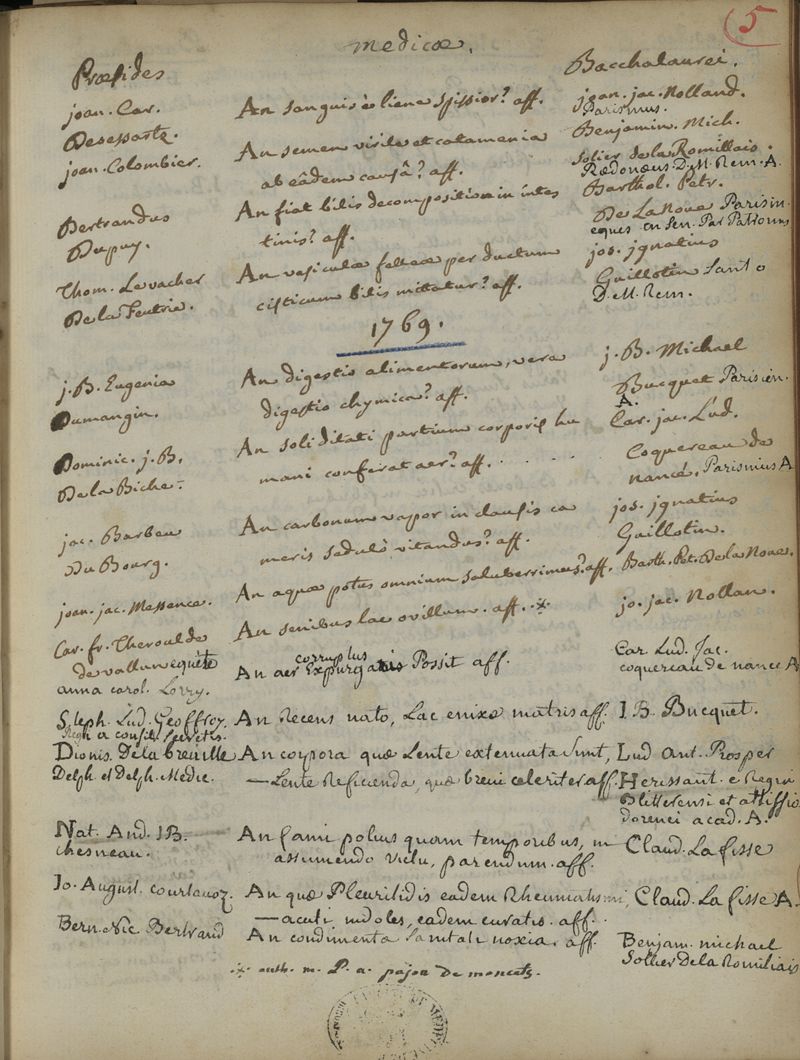 5
medicæ.
Præsides
Bacchalaurei.
joan. Car.
An sanguis è liene spissior? aff.
joan. jac. Nolland.
Parisinus.
Desessartz.
joan. Colombier.
An semen virile et catamenia
Benjamin. Mich.
ab eâdem causâ? aff.
Solier de la Romillais.
Redoneus. D. M. Rem. A.
Bertrandus
An fiat bilis decompositio in intes
Barthol. Petr.
Dupuy.
tinis? aff.
De La Noue Parisin
eques
jos. jgnatius
Thom. Levacher
An vesiculæ felleæ per ductum
Guillotin
De la Feutrie.
cisticum bilis mittatur? aff.
D. M. Rem.
1769.
j. B. Eugenia
An digestio alimentorum, vera
j. B. Michael
Dumangin.
digestio chymica? aff.
Bucquet Parisien.
A.
Dominic. j. B.
An soliditati partium corporis hu
Car. jac. Lud.
De la Biche.
mani conferat aer? aff.
Coquereau de
nancé, Parisinus A
jac. Barbeu
An carbonum vapor in clausis ca
jos. jgnatius
Du Bourg.
meris sedulò vitandus? aff.
Guillotin.
joan. jac. Messence.
An aquæ potus omnium saluberrimus? aff.
Barth. Pet. De la Noue.
Car. fr. Theroulde
An senibus lac ovillum. aff. ※
jo. jac. Nollan.
de vallun equite
corruptus
Car. Lud. Jac.
anna carol. Lorry.
An aer Expurgari Possit aff.
coquereau de nance A
Steph. Lud. Geoffroy.
An Recens nato, Lac enixæ matris aff.
I. B. Bucquet.
Regi a consil. secretis.
Dionis. De la breuille
An corpora quæ Lente extenuata sunt,
Lud Ant. Prosper
Delph. et Delph. Medic.
— Lente Reficienda, quæ brevi celeriter aff.
Herissant e Regia
Blitterensi et attissio
dorenci acad. A.
Nat. And. I B.
An fami potius quam temporibus, in
Claud. La fisse
chesneau.
assumendo victu, parendum. aff.
Io. August. courtavoz.
An quæ Pleuritidis eadem Rheumatismi
Claud. La fisse A.
— acuti indoles, eadem curatio. aff.
Bern. Nic Bertrand
An condimenta sanitati noxia. aff.
Benjam. michael
Sollier De la Romiliais
※ auth. m. P. a. pajon de moncets.